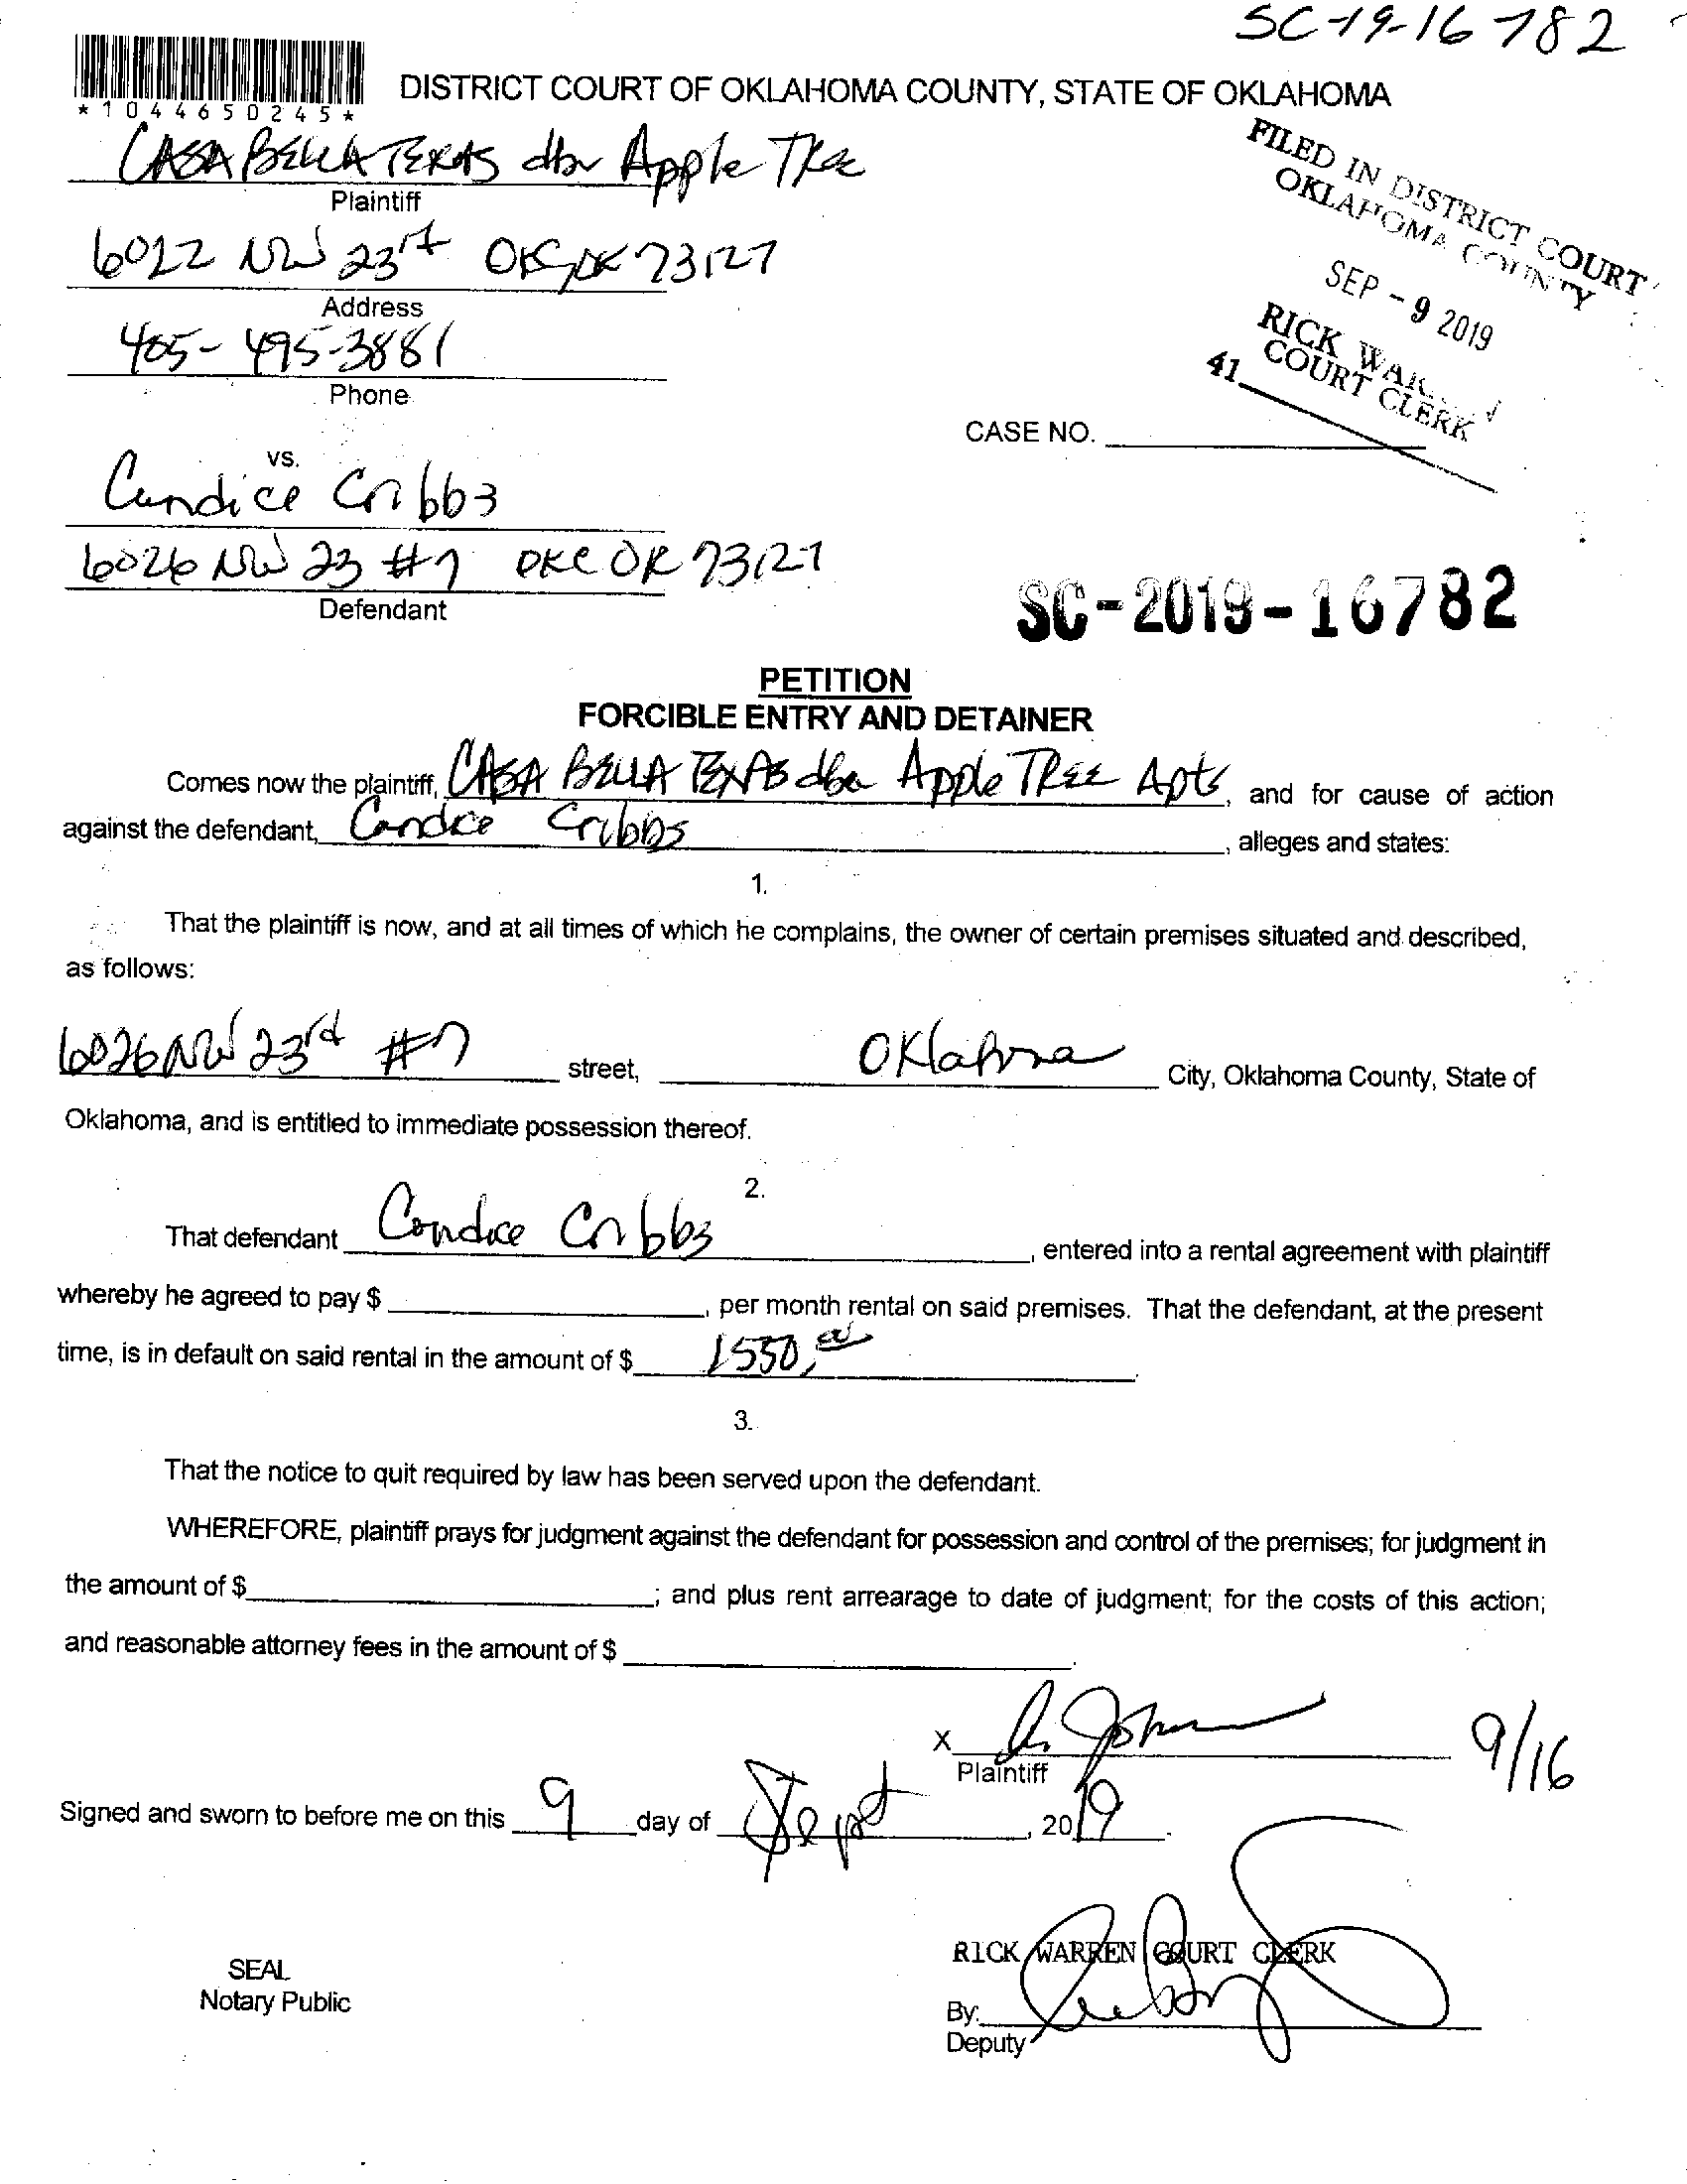 SC-19-16782
*1044650245*
DISTRICT COURT OF OKLAHOMA COUNTY, STATE OF OKLAHOMA
CASA BELLA TEXAS dba Apple Tree
Plaintiff
FILED IN DISTRICT COURT
OKLAHOMA COUNTY
6022 NW 23rd OKC, OK 73127
Address
SEP - 9 2019
405-495-3881
Phone
RICK WARREN
COURT CLERK
41
CASE NO.
vs.
Candice Cribbs
6026 NW 23 #7 OKC OK 73127
Defendant
SC-2019-16782
PETITION
FORCIBLE ENTRY AND DETAINER
Comes now the plaintiff, CASA BELLA TEXAS dba Apple TREE Apts, and for cause of action
against the defendant, Candice Cribbs, alleges and states:
1.
That the plaintiff is now, and at all times of which he complains, the owner of certain premises situated and described,
as follows:
6026 NW 23rd #7 street, Oklahoma City, Oklahoma County, State of
Oklahoma, and is entitled to immediate possession thereof.
2.
That defendant Candice Cribbs, entered into a rental agreement with plaintiff
whereby he agreed to pay $, per month rental on said premises. That the defendant, at the present
time, is in default on said rental in the amount of $ 1550.00
3.
That the notice to quit required by law has been served upon the defendant.
WHEREFORE, plaintiff prays for judgment against the defendant for possession and control of the premises; for judgment in
the amount of $; and plus rent arrearage to date of judgment; for the costs of this action;
and reasonable attorney fees in the amount of $.
X
Plaintiff
9/16
Signed and sworn to before me on this 9 day of Sept, 2019.
RICK WARREN COURT CLERK
SEAL
Notary Public
By:
Deputy